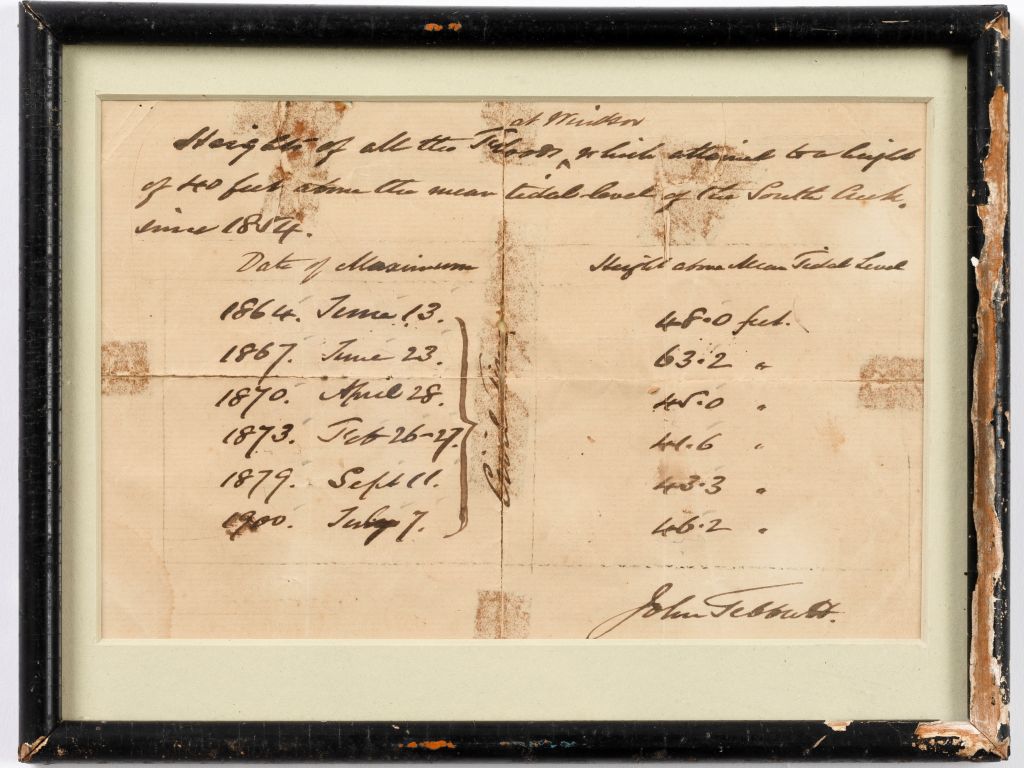 at Windsor
Heights of all the Floods ^ which attained to a height
of 40 feet above the mean tidal level of the South Creek,
since 1854.
Date of Maximum Height above Mean Tidal Level
1864. June 13. 48.0 feet.
1867. June 23. 63.2 "
1870. April 28. 45.0 "
1873. Feb 26-27. 41.6 "
1879. Sept 11. 43.3 "
1900. July 7. 46.2 "
Civil Time
John Tebbutt.